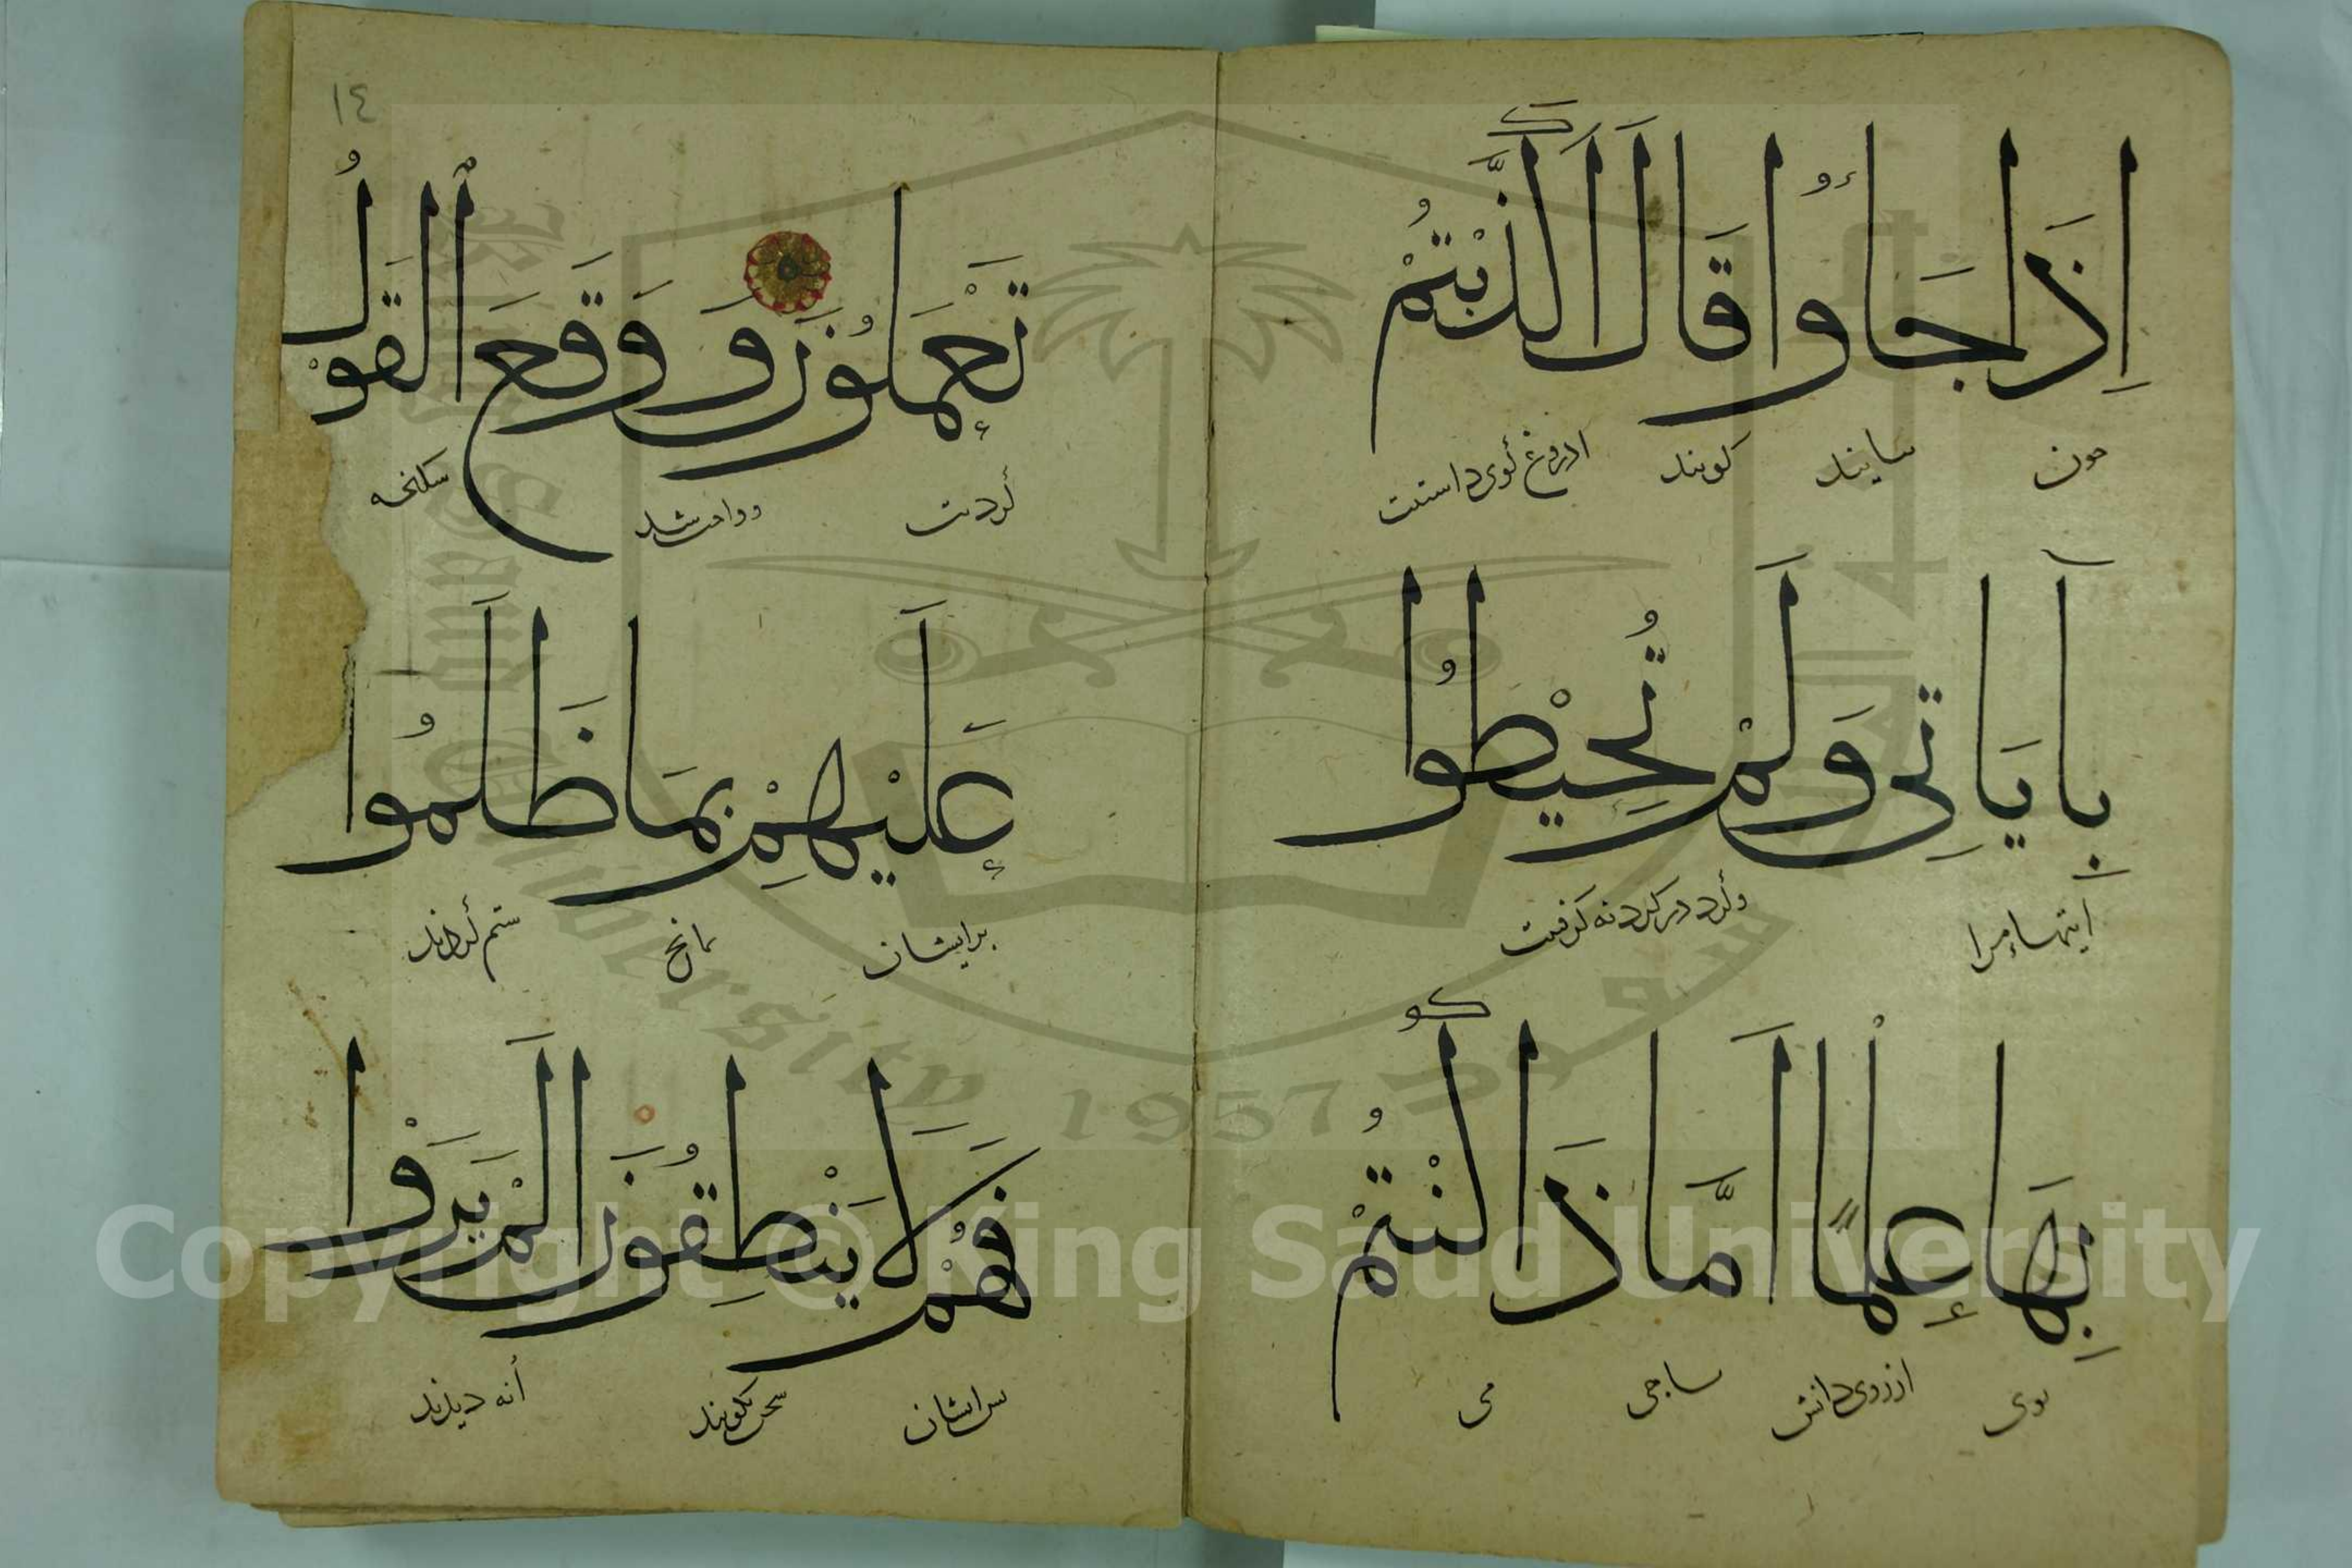 إِذَا جَاءُوا قَالَ أَكَذَّبْتُمْ
چون بیایند گویند ادروغ گوی داشتیت
بِآيَاتِي وَلَمْ تُحِيْطُوا
آیتهاء مرا وگرد در کرد نه گرفتیت
بِهَا عِلْمًا أَمَّا ذَا كُنْتُمْ
بوی از روی دانش یا چی می
١٤
تَعْمَلُونَ وَوَقَعَ الْقَوْلُ
کردیت وواجب شد
عَلَيْهِمْ بِمَا ظَلَمُوا
بر ایشان بانچ ستم کردند
فَهُمْ لَا يَنْطِقُونَ أَلَمْ يَرَوْا
پس ایشان سخن نگویند أنه دیدند
King Saud University
1957
Copyright © King Saud University